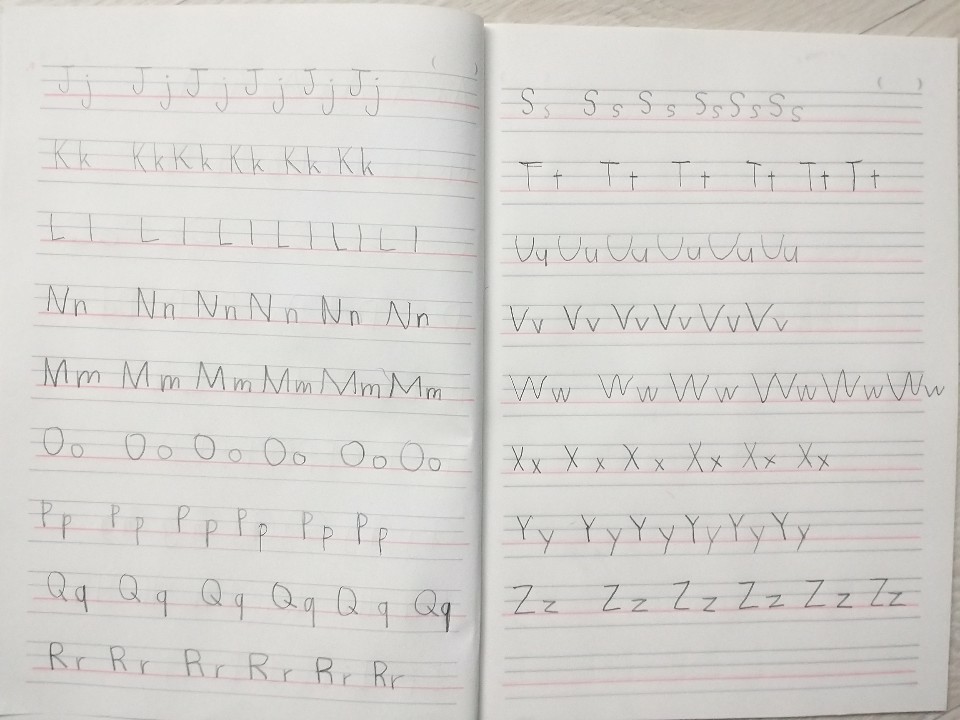 Jj Jj Jj Jj Jj Jj
Kk Kk Kk Kk Kk Kk
Ll Ll Ll Ll Ll Ll
Nn Nn Nn Nn Nn Nn
Mm Mm Mm Mm Mm Mm
Oo Oo Oo Oo Oo Oo
Pp Pp Pp Pp Pp Pp
Qq Qq Qq Qq Qq Qq
Rr Rr Rr Rr Rr Rr
Ss Ss Ss Ss Ss Ss
Tt Tt Tt Tt Tt Tt
Uu Uu Uu Uu Uu Uu
Vv Vv Vv Vv Vv Vv
Ww Ww Ww Ww Ww Ww
Xx Xx Xx Xx Xx Xx
Yy Yy Yy Yy Yy Yy
Zz Zz Zz Zz Zz Zz